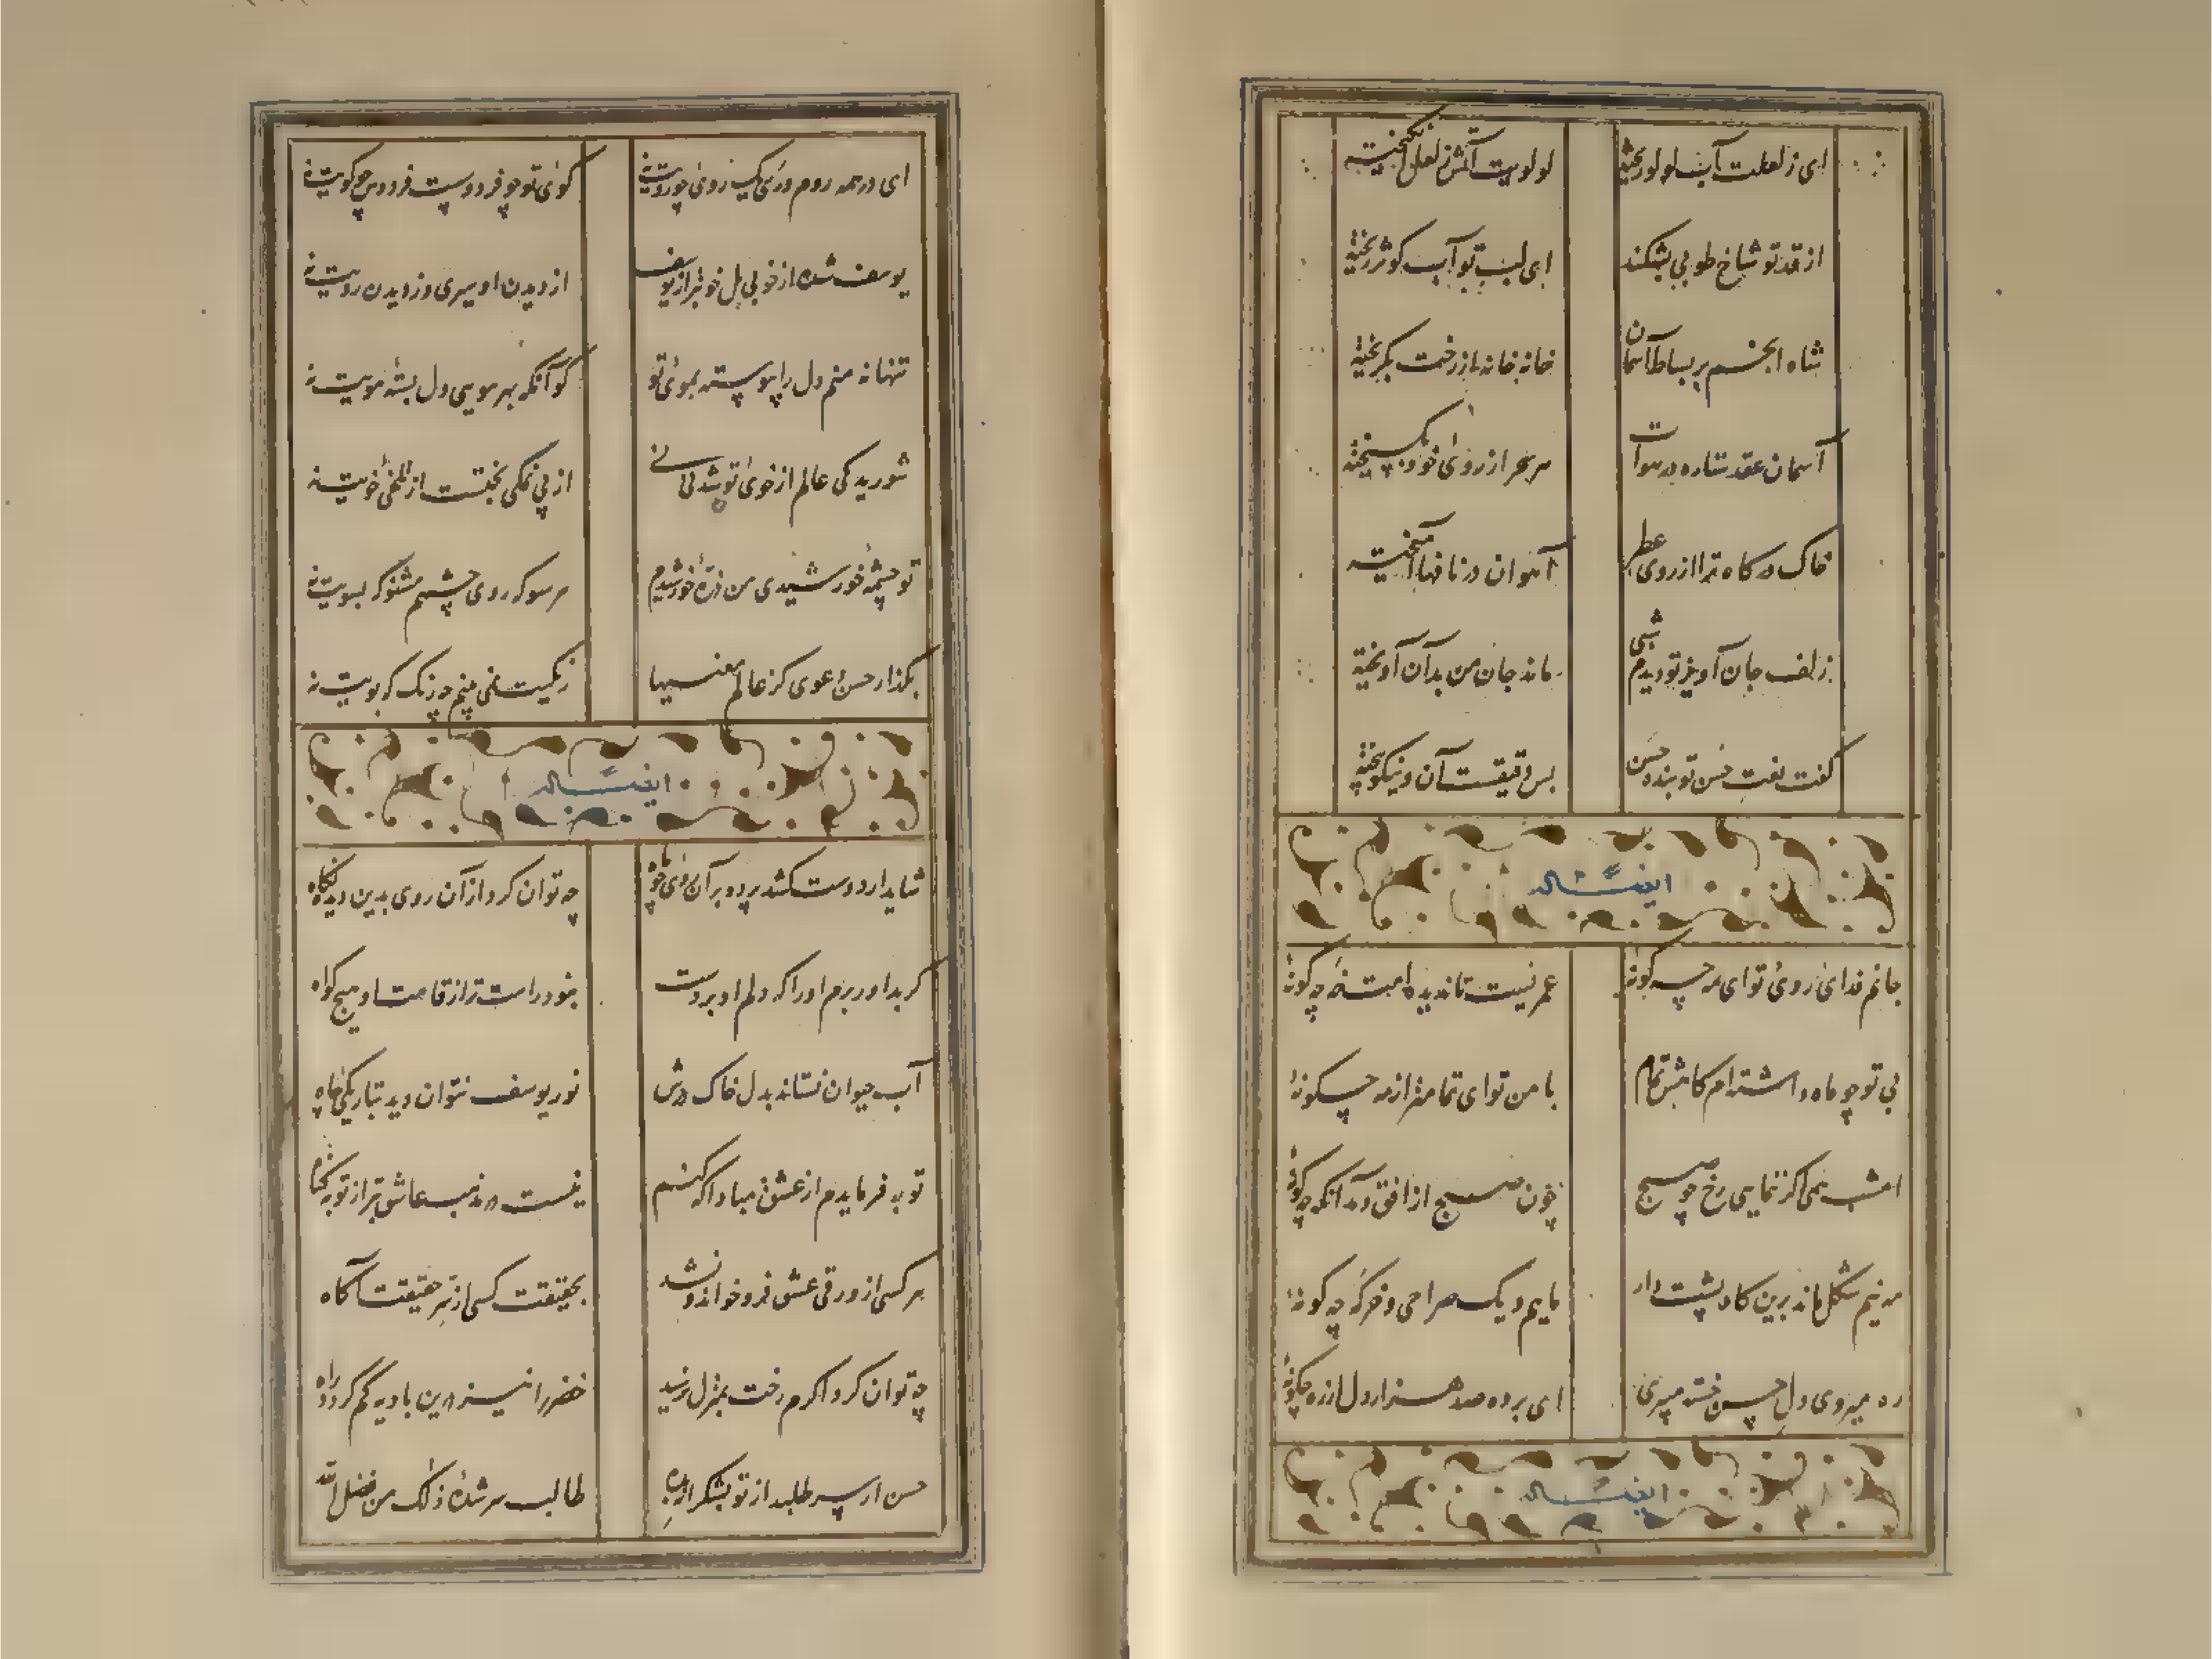 ای ز لعلت آب لولو ریخته لولویت آتش ز لعل انگیخته
از قد تو شاخ طوبی بشکند ای لب تو آب کوثر ریخته
شاه انجم بر بساط آسمان خانه خانه باز رخت بگریخته
آسمان عقد ستاره در هوات هر سحر از روی خود بگسیخته
خاک درکاه ترا از روی عطر آهوان در نافها آمیخته
زلف جان آویز تو دیدم شبی مانده جان من بدان آویخته
کفت نعت حسن تو بنده حسن بس دقیقست آن و نیکو بیخته
ایضا له
جانم فدای روی تو ای مه چه کونه عمریست تا ندیده امت خه چه کونه
بی تو چو ماه داشته ام کاهش تمام با من تو ای تمامتر از مه چه کونه
امشب همی کر ننمایی رخ چو صبح چون صبح از افق دمد آنکه چه کونه
مه نیم شکل ماند برین کاو پشت دار ماییم و یک صراحی و خرکه چه کونه
ره میروی دل حسن خسته میبری ای برده صد هزار دل از ره چکونه
ایضا له
ای در همه روم و ری یک روی چو رویت نه کوی تو چو فردوست فردوس چو کویت نه
یوسف شده از خوبی بل خوبتر از یوسف از دیدن او سیری وز دیدن رویت نه
تنها نه منم دل را پیوسته بموی تو کو آنکه بهر مویی دل بسته مویت نه
شوریدکی عالم از خوی تو شد لیکن از بی نمکی بختست از تلخی خویت نه
تو چشمه خورشیدی من ذره خورشیدم هر سو که روی چشمم مشنو که بسویت نه
بکذار حسن دعوی کز عالم معنیها رنکیت نمی بینم چه رنک که بویت نه
ایضا له
شاید ار دوست کشد پرده بر آن روی چو ماه چه توان کرد از آن روی بدین دیده نکاه
کر بداور برم او را که دلم او بردست نبود راست تر از قامت او هیچ کواه
آب حیوان نستاند بدل خاک درش نور یوسف نتوان دید بتاریکی چاه
توبه فرمایدم از عشق مبادا که کنم نیست در مذهب عاشق بتر از توبه کناه
هر کسی از ورق عشق فرو خواند و نشد بحقیقت کسی از سر حقیقت آکاه
چه توان کرد اکرم رخت بمنزل نرسید خضر را نیز درین بادیه کم کردد راه
حسن ار سر طلبد از تو بشکر از بده طالب سر شده ذلک من فضل الله